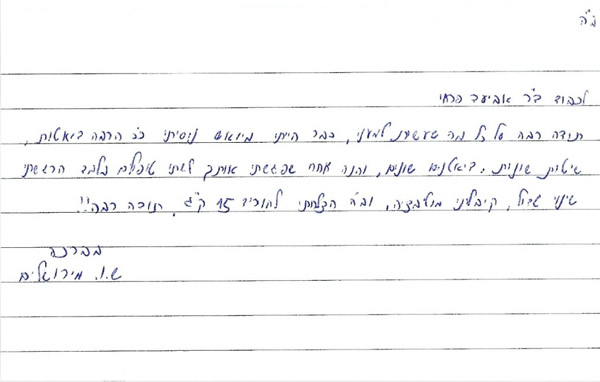 ב"ה
לכבוד ד"ר אביעד פרחי
תודה רבה על כל מה שעשית למעני, כבר הייתי מיואש ניסיתי כ"כ הרבה דיאטות,
שיטות שונות, דיאטנים שונים, והנה אחרי שפגשתי אותך לשתי טיפולים בלבד הרגשתי
שינוי גדול, קיבלתי מוטיבציה, וב"ה הצלחתי להוריד 15 ק"ג, תודה רבה!!
בברכה
ש.ו. מירושלים